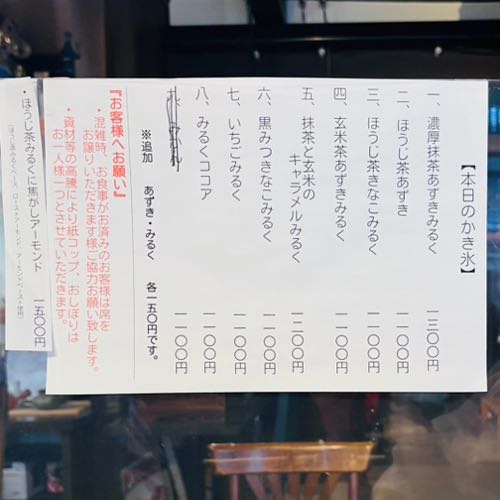 【本日のかき氷】
一、濃厚抹茶あずきみるく 一三〇〇円
二、ほうじ茶あずき 一一〇〇円
三、ほうじ茶きなこみるく 一一〇〇円
四、玄米茶あずきみるく 一一〇〇円
五、抹茶と玄米の
キャラメルみるく 一二〇〇円
六、黒みつきなこみるく 一一〇〇円
七、いちごみるく 一一〇〇円
八、みるくココア 一一〇〇円
一一〇〇円
※追加 あずき・みるく 各一五〇円です。
『お客様へお願い』
・混雑時、お食事がお済みのお客様は席を
お譲りいただきます様ご協力お願い致します。
・資材等の高騰により紙コップ、おしぼりは
お一人様一つとさせていただきます。
・ほうじ茶みるくに焦がしアーモンド 一五〇〇円
(ほうじ茶みるくベース、ローストアーモンド、アーモンドペースト使用)